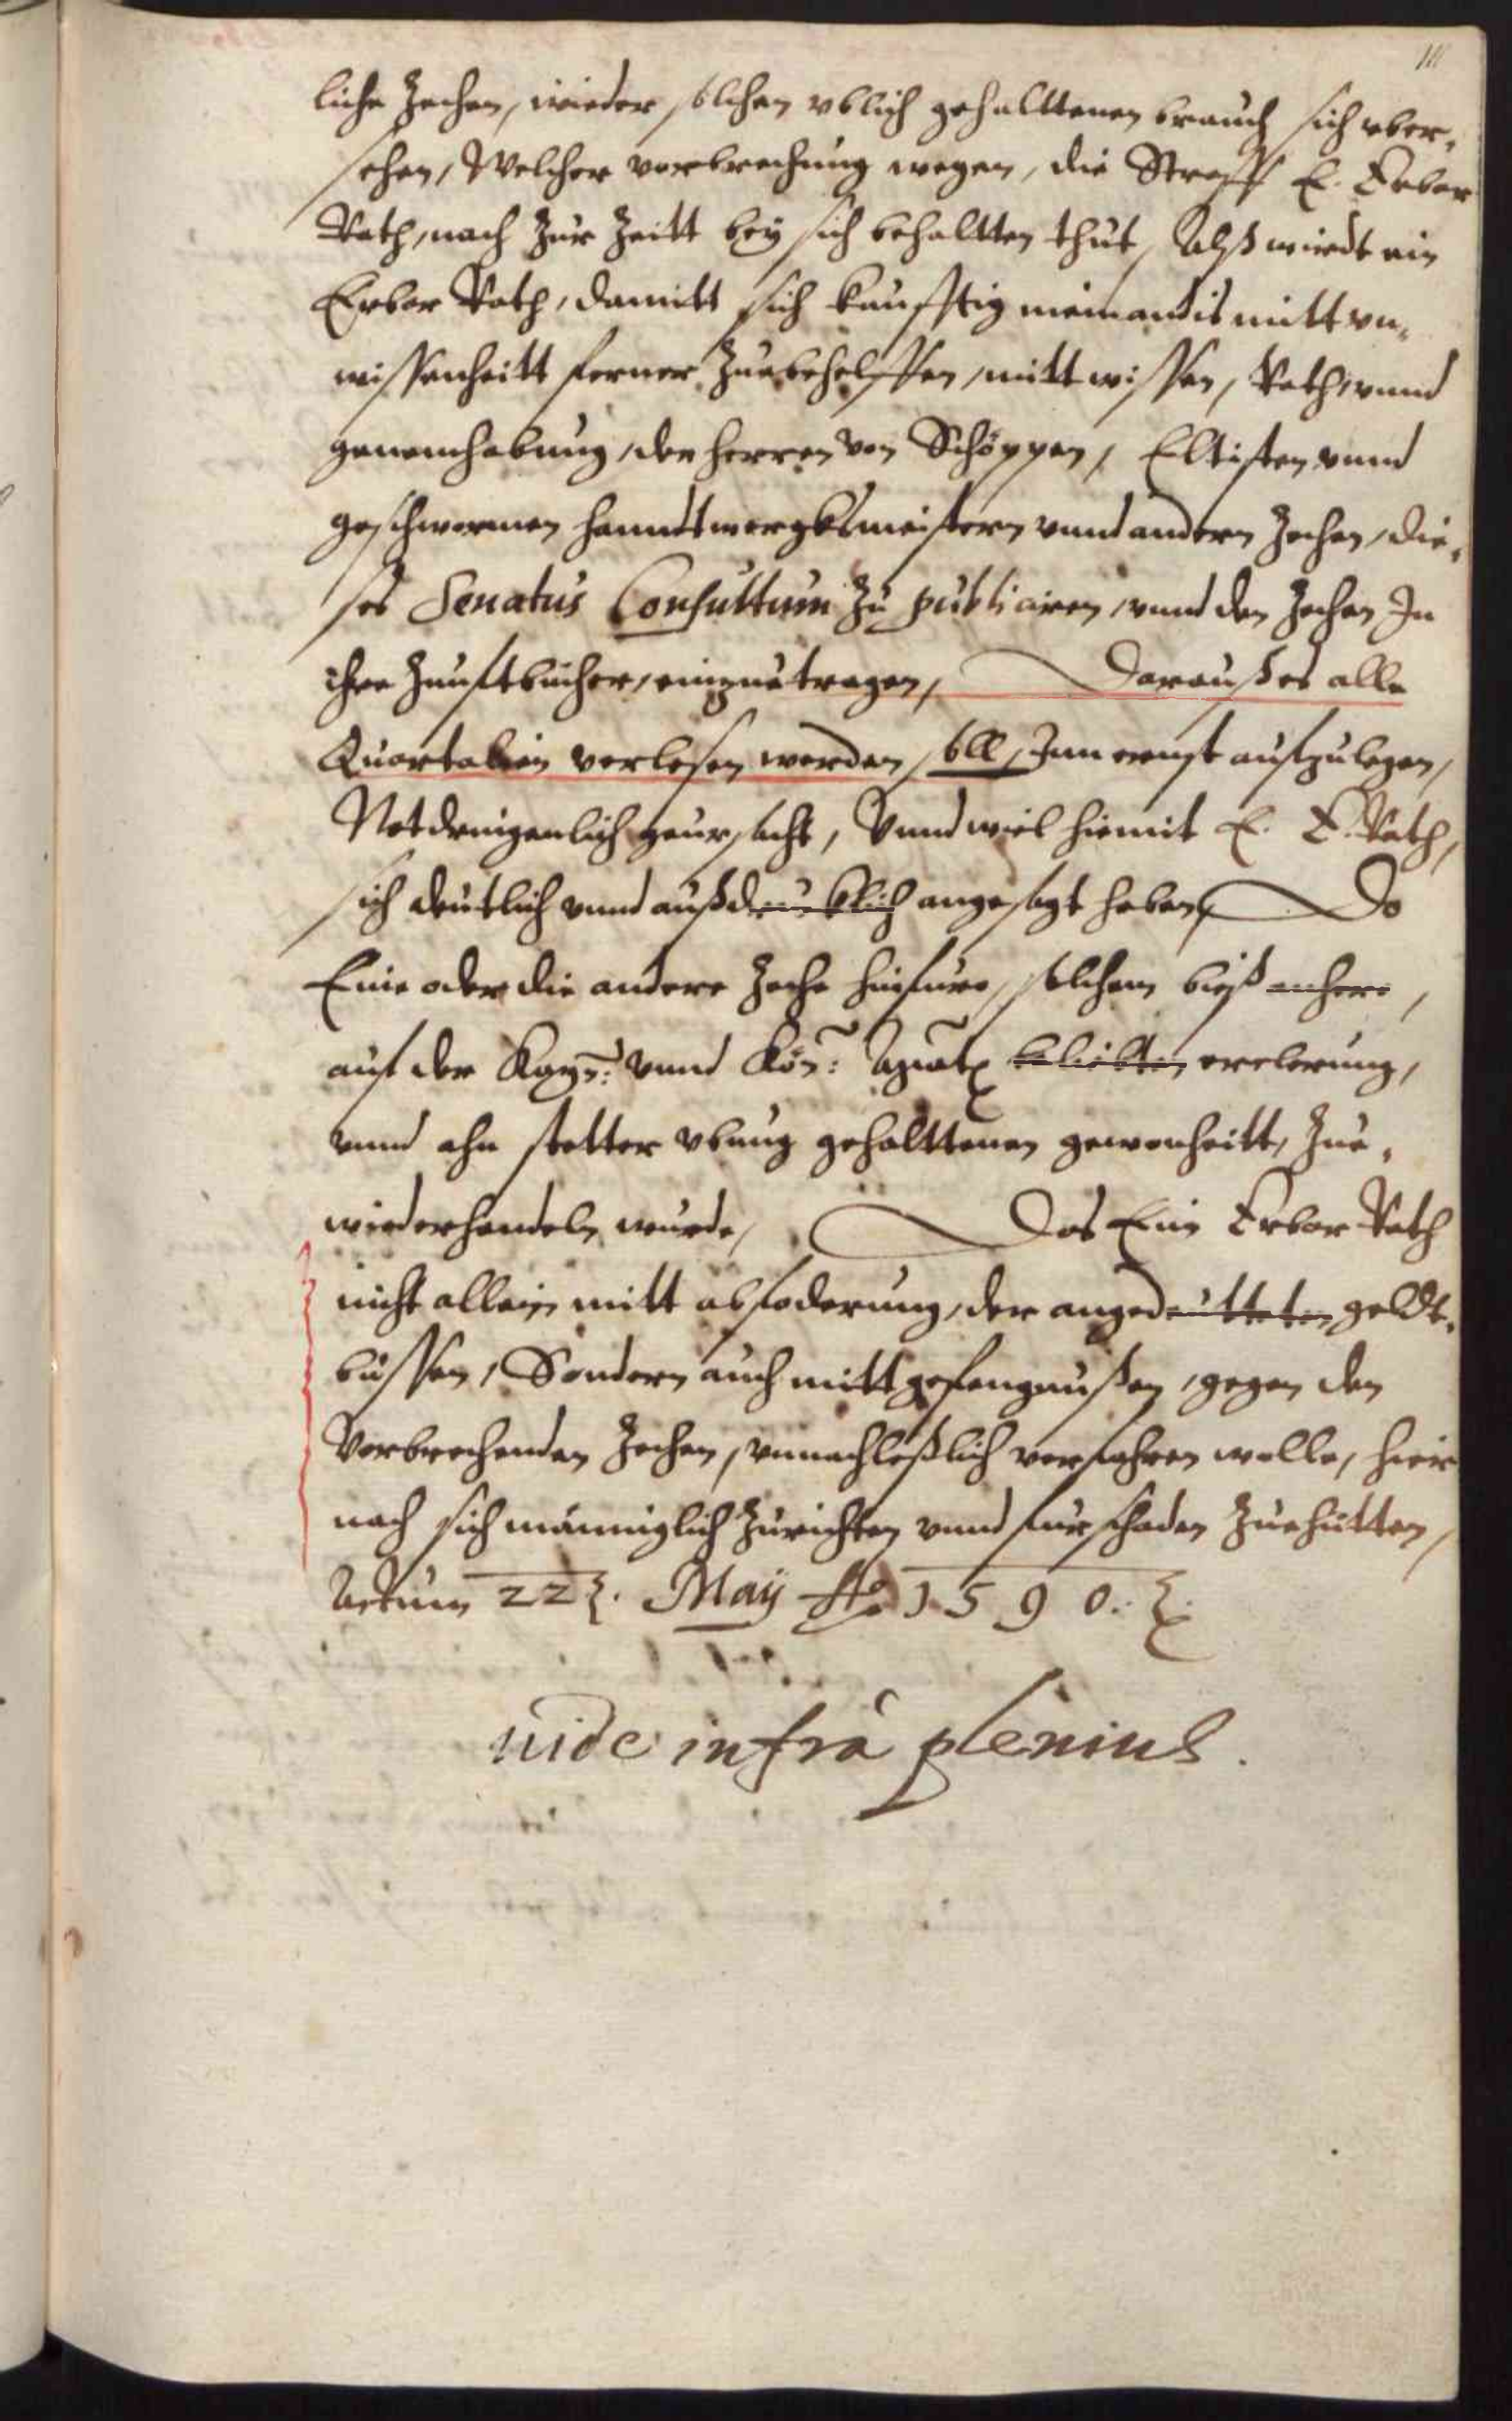 111
liche Zechen, wieder solchen vblich gehalttenen brauch sich vber„
sehen, Welcher verbrechung wegen, die Straff E. Erbar
Rath, nach Zur Zeitt bey sich behaltten thut, Alß wirdt ein
Erbar Rath, damitt sich kunfftig niemandts mitt vn„
wissenheitt ferner Zuebehelffen, mitt wissen, Rath, vnnd
genemhabung, der herren von Schöppen, Eltisten vnnd
geschwornen hanndtwergksmeistern vnnd andern Zechen, die„
ses Senatus Consultum Zu publiciren, vnnd den Zechen In
ihre Zunftbücher, einzuetragen, Darauß es alle
Quartalien verlesen werden soll, Inn ernst aufzulegen,
Notdrinigenlich geursacht, Vnnd wiel hiemit E. E. Rath,
sich deutlich vnnd außdrucklich angesagt haben, Do
Eine oder die andere Zeche hinfuro, solchem bieß anhero,
auf der Kayn: vnnd Kön: Maiat beliebten erclerung,
vnnd ahn stetter vbung gehalttenen gewonheitt, Zue„
wiederhandeln wurde, Das Ein Erbar Rath
nicht allein mitt abfoderung, der angedeutteten geldt„
bussen, Sondern auch mitt gefengnußen, gegen den
Verbrechenden Zechen, vnnachleßlich verfahren wolle, hier
nach sich männiglich Zurichten vnnd fur schaden Zuehütten,
Actum 22. Maij Ao 1590.
uide infrà plenius.